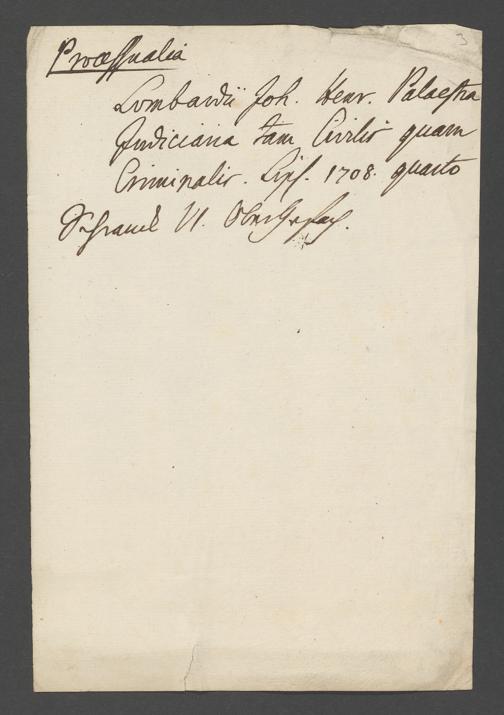 3
Processualia
Lombardii Joh. Henr. Palaestra
Judiciaria tam Civilis quam
Criminalis. Lips. 1708. quarto
Schranck VI.